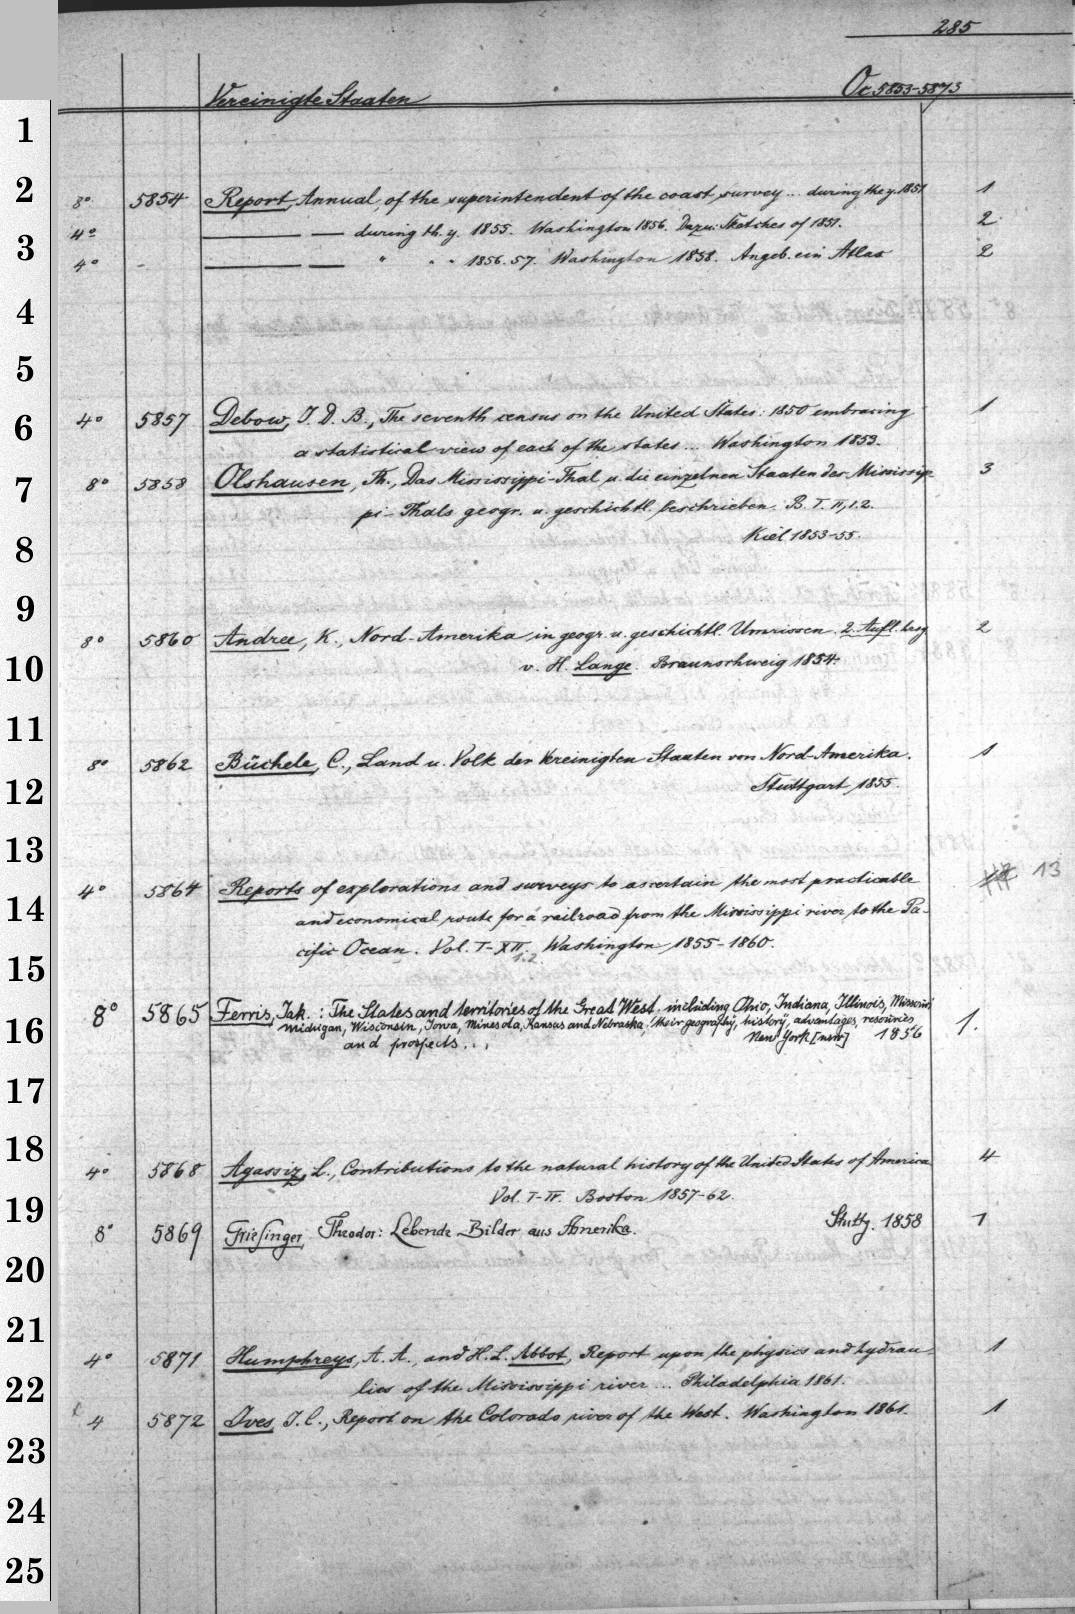 285
Vereinigte Staaten Oc 5853-5873
1
2
8° 5854 Report, Annual, of the superintendent of the coast survey ... during the y. 1851 1
4° during th. y. 1855. Washington 1856. Dazu: Sketches of 1851. 2
3
4° - " " " 1856. 57. Washington 1858. Angeb. ein Atlas 2
4
5
4° 5857 Debow, J. D. B., The seventh census on the United States: 1850 embracing 1
6
a statistical view of each of the states ... Washington 1853.
7
8° 5858 Olshausen, Th., Das Mississippi-Thal u. die einzelnen Staaten des Mississip- 3
pi-Thals geogr. u. geschichtl. beschrieben. B. I. II,1.2.
8
Kiel 1853-55.
9
8° 5860 Andree, K., Nord-Amerika in geogr. u. geschichtl. Umrissen. 2. Aufl. besg 2
10
v. H. Lange. Braunschweig 1854.
11
8° 5862 Büchele, C., Land u. Volk der Vereinigten Staaten von Nord-Amerika. 1
12
Stuttgart 1855.
13
4° 5864 Reports of explorations and surveys to ascertain the most practicable 13
14
and economical route for a railroad from the Mississippi river to the Pa-
cific Ocean. Vol. I-XII. 1.2. Washington 1855-1860.
15
8° 5865 Ferris, Jak.: The States and territories of the Great West. including Ohio, Indiana, Illinois, Missouri, 1.
16
Michigan, Wisconsin, Iowa, Minesota, Kansus and Nebraska, their geography, history, advantages, resources
and prospects... New York [usw] 1856
17
18
4° 5868 Agassiz, L., Contributions to the natural history of the United States of America 4
Vol. I-IV. Boston 1857-62.
19
8° 5869 Griesinger, Theodor: Lebende Bilder aus Amerika. Stuttg. 1858 1
20
21
4° 5871 Humphreys, A. A., and H. L. Abbot, Report upon the physics and hydrau- 1
22
lics of the Mississippi river ... Philadelphia 1861.
4 5872 Ives, J. C., Report on the Colorado river of the West. Washington 1861. 1
23
24
25